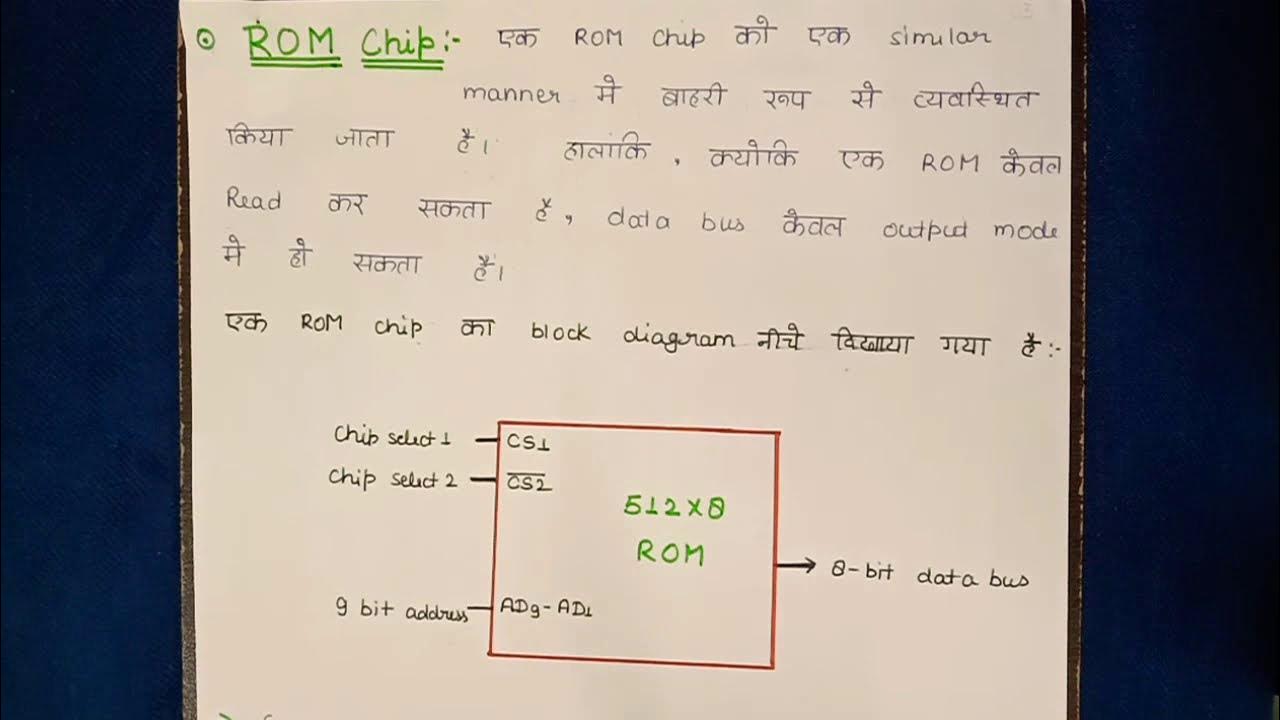 ROM Chip:- एक ROM Chip को एक similar
manner मे बाहरी रूप से व्यवस्थित
किया जाता है। हालांकि, क्योकि एक ROM केवल
Read कर सकता है, data bus केवल output mode
मे हो सकता है।
एक ROM chip का block diagram नीचे दिखाया गया है:-
Chip select 1 CS1
Chip select 2 C̅S̅2̅
512×8
ROM
8-bit data bus
9 bit address AD9-AD1